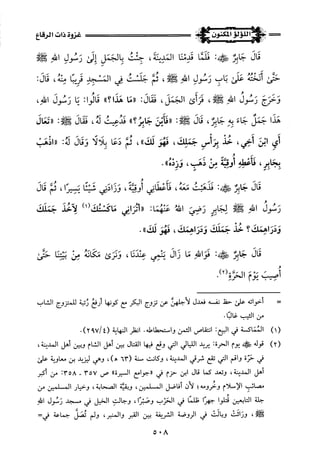 اللؤلؤ المكنون
غزوة ذات الرقاع
قَالَ جَابِرٌ ﷺ: فَلَمَّا قَدِمْنَا المَدِينَةَ، جِئْتُ بِالجَمَلِ إِلَى رَسُولِ اللهِ ﷺ
حَتَّى أَنَخْتُهُ عَلَى بَابِ رَسُولِ اللهِ ﷺ، ثُمَّ جَلَسْتُ فِي المَسْجِدِ قَرِيبًا مِنْهُ، قَالَ:
وَخَرَجَ رَسُولُ اللهِ ﷺ، فَرَأَى الجَمَلَ، فَقَالَ: «مَا هَذَا؟» قَالُوا: يَا رَسُولَ اللهِ،
هَذَا جَمَلٌ جَاءَ بِهِ جَابِرٌ، قَالَ ﷺ: «فَأَيْنَ جَابِرٌ؟» فَدُعِيتُ لَهُ، فَقَالَ ﷺ: «تَعَالَ
أَيِ ابْنَ أَخِي، خُذْ بِرَأْسِ جَمَلِكَ، فَهُوَ لَكَ»، ثُمَّ دَعَا بِلَالًا وَقَالَ لَهُ: «اذْهَبْ
بِجَابِرٍ، فَأَعْطِهِ أُوقِيَّةً مِنْ ذَهَبٍ، وَزِدْهُ».
قَالَ جَابِرٌ: فَذَهَبْتُ مَعَهُ، فَأَعْطَانِي أُوقِيَّةً، وَزَادَنِي شَيْئًا يَسِيرًا، ثُمَّ قَالَ
رَسُولُ اللهِ ﷺ لِجَابِرٍ رَضِيَ اللهُ عَنْهُمَا: «أَتُرَانِي مَاكَسْتُكَ(١) لِآخُذَ جَمَلَكَ
وَدَرَاهِمَكَ؟ خُذْ جَمَلَكَ وَدَرَاهِمَكَ، فَهُوَ لَكَ».
قَالَ جَابِرٌ: فَوَاللهِ مَا زَالَ يَنْمِي عِنْدَنَا، وَنَرَى مَكَانَهُ مِنْ بَيْتِنَا حَتَّى
أُصِيبَ يَوْمَ الحَرَّةِ(٢).
= أخواته على حظ نفسه فعدل لأجلهنَّ عن تزوج البكر مع كونها أرفعُ رُتبة للمتزوج الشاب
من الثيب غالبًا.
(١) المُمَاكسة في البيع: انتقاص الثمن واستحطاطه. انظر النهاية (٤/٢٩٧).
(٢) قوله يوم الحرة: يريد الليالي التي وقع فيها القتال بين أهل الشام وبين أهل المدينة،
في حَرَّة واقم التي تقع شرقي المدينة، وكانت سنة (٦٣ هـ)، وهي ليزيد بن معاوية على
أهل المدينة، وتُعد كما قال ابن حزم في «جوامع السيرة» ص ٣٥٧ ـ ٣٥٨: من أكبر
مصائب الإسلام وخُرومه؛ لأن أفاضل المسلمين، وبقيَّة الصحابة، وخيار المسلمين من
جلة التابعين قُتلوا جهرًا ظلمًا في الحَرْب وصَبْرًا، وجالت الخيل في مسجد رسُول اللهِ
ﷺ، ورَاثَتْ وبالَتْ في الروضة الشريفة بين القبر والمنبر، ولم تُصَلَّ جماعة في=
٥٠٨